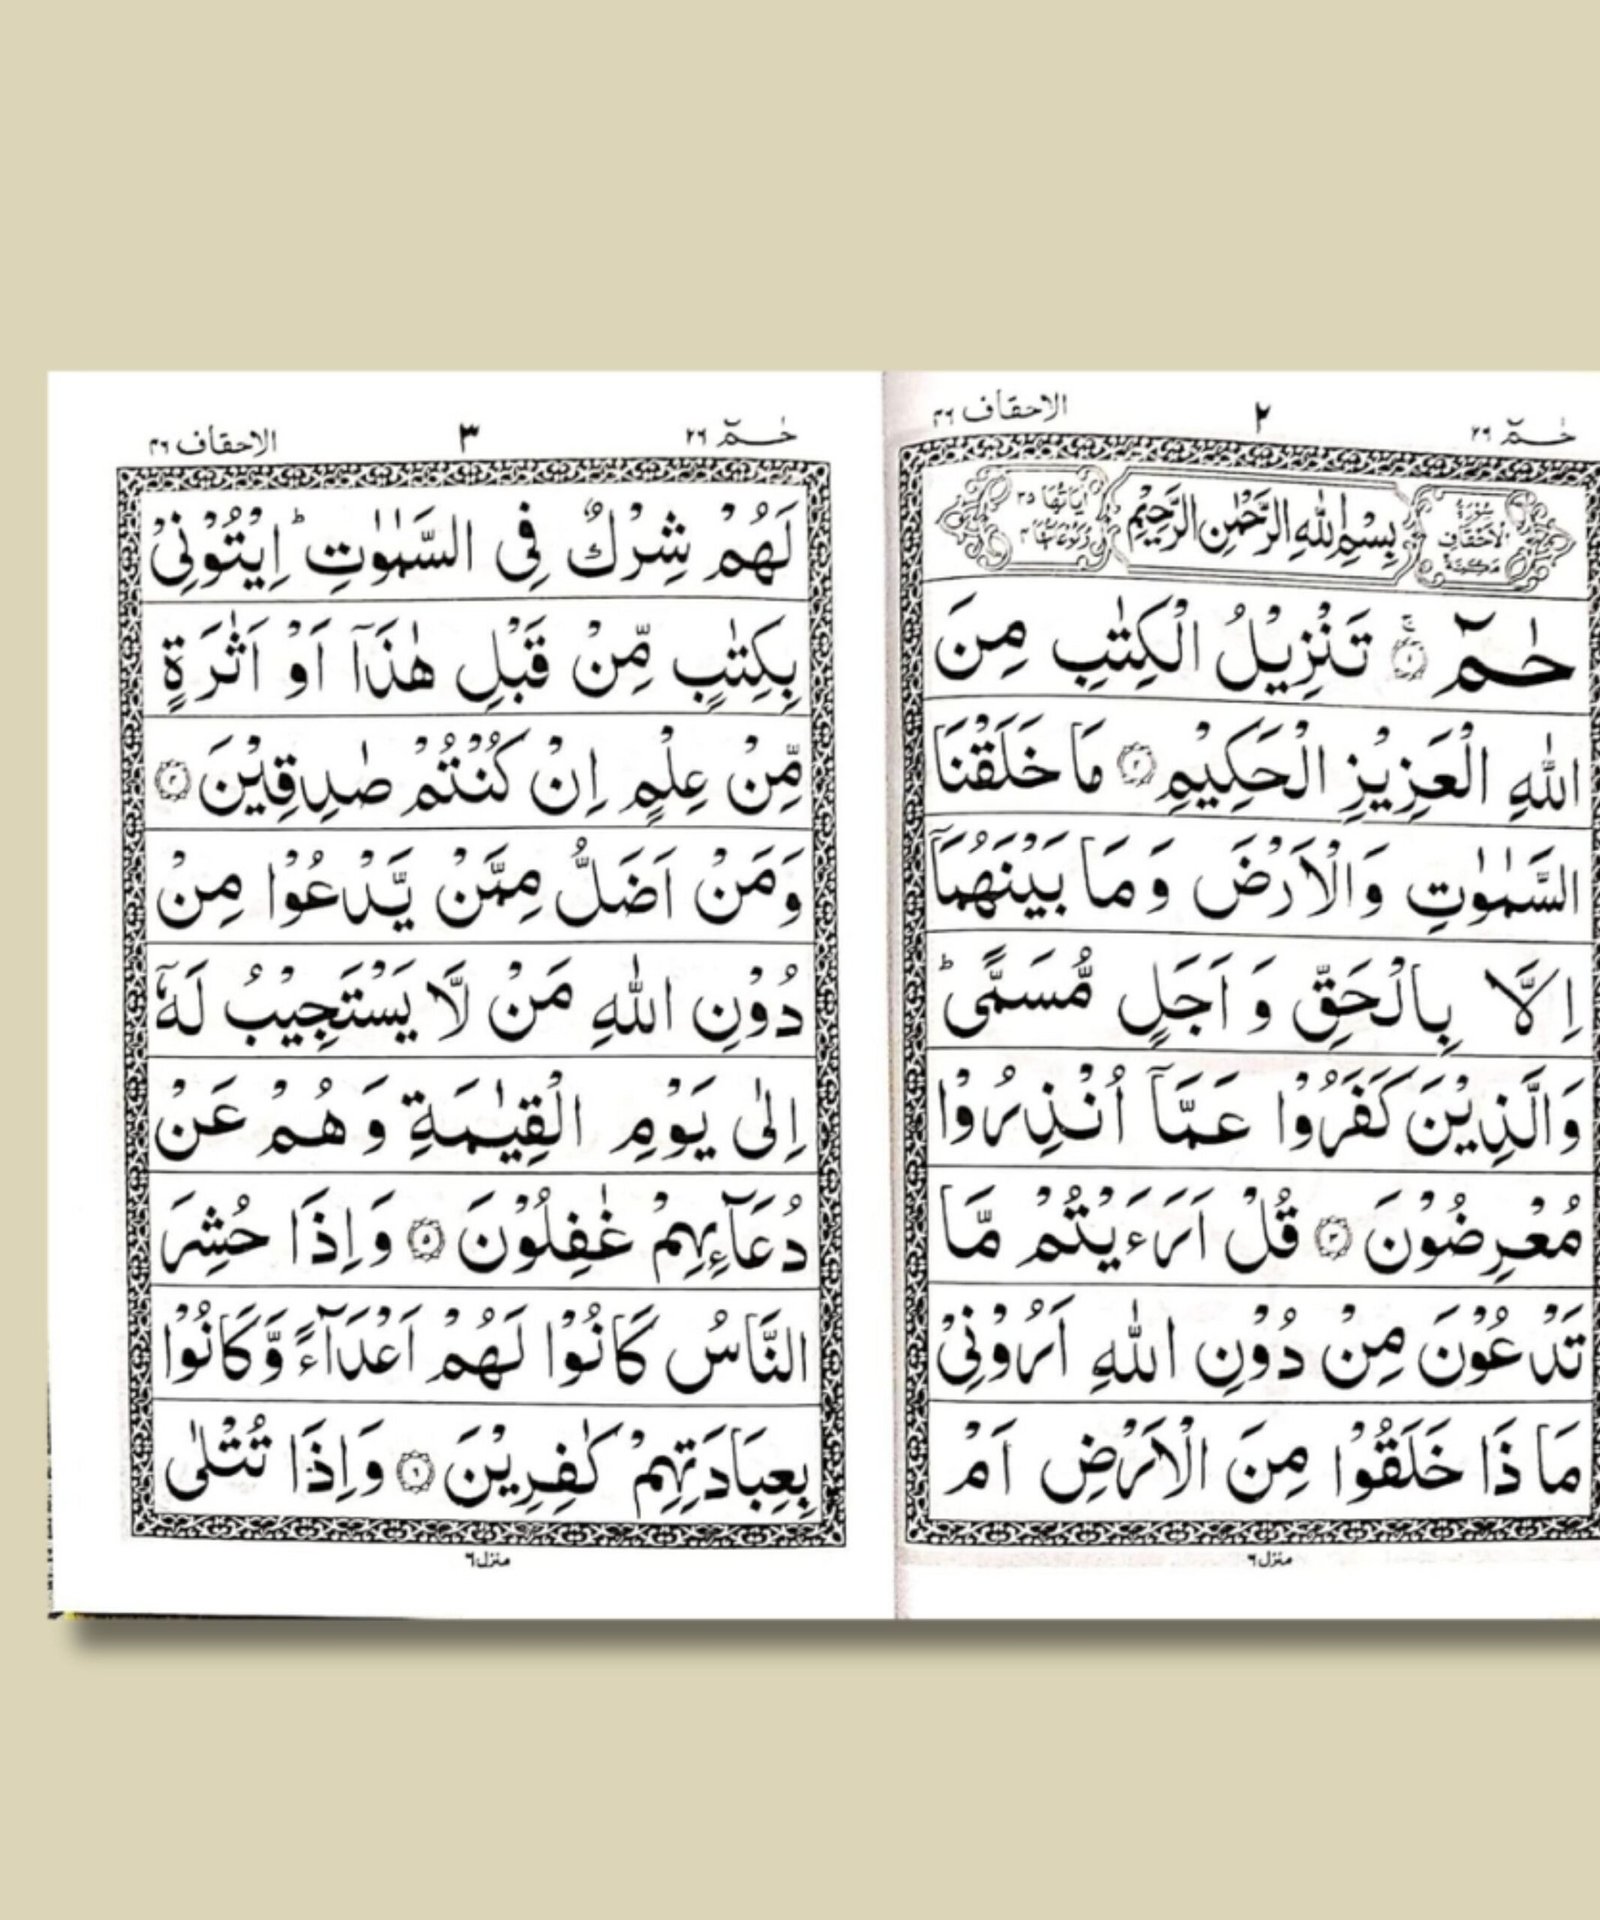 حٰمٓ ٢٦
٢
الاحقاف ٤٦
سُوْرَةُ الْاَحْقَافِ مَكِّيَّةٌ
بِسْمِ اللّٰهِ الرَّحْمٰنِ الرَّحِيْمِ
اٰيَاتُهَا ٣٥ رُكُوْعَاتُهَا ٤
حٰمٓ ۚ‏﴿١﴾ تَنْزِيْلُ الْكِتٰبِ مِنَ
اللّٰهِ الْعَزِيْزِ الْحَكِيْمِ ﴿٢﴾ مَا خَلَقْنَا
السَّمٰوٰتِ وَالْاَرْضَ وَمَا بَيْنَهُمَاۤ
اِلَّا بِالْحَقِّ وَ اَجَلٍ مُّسَمًّى ؕ
وَالَّذِيْنَ كَفَرُوْا عَمَّاۤ اُنْذِرُوْا
مُعْرِضُوْنَ ﴿٣﴾ قُلْ اَرَءَيْتُمْ مَّا
تَدْعُوْنَ مِنْ دُوْنِ اللّٰهِ اَرُوْنِىْ
مَا ذَا خَلَقُوْا مِنَ الْاَرْضِ اَمْ
منزل ٦
حٰمٓ ٢٦
٣
الاحقاف ٤٦
لَهُمْ شِرْكٌ فِى السَّمٰوٰتِ ؕ اِيْتُوْنِىْ
بِكِتٰبٍ مِّنْ قَبْلِ هٰذَاۤ اَوْ اَثٰرَةٍ
مِّنْ عِلْمٍ اِنْ كُنْتُمْ صٰدِقِيْنَ ﴿٤﴾
وَمَنْ اَضَلُّ مِمَّنْ يَّدْعُوْا مِنْ
دُوْنِ اللّٰهِ مَنْ لَّا يَسْتَجِيْبُ لَهٗۤ
اِلٰى يَوْمِ الْقِيٰمَةِ وَهُمْ عَنْ
دُعَآءِهِمْ غٰفِلُوْنَ ﴿٥﴾ وَاِذَا حُشِرَ
النَّاسُ كَانُوْا لَهُمْ اَعْدَآءً وَّكَانُوْا
بِعِبَادَتِهِمْ كٰفِرِيْنَ ﴿٦﴾ وَاِذَا تُتْلٰى
منزل ٦